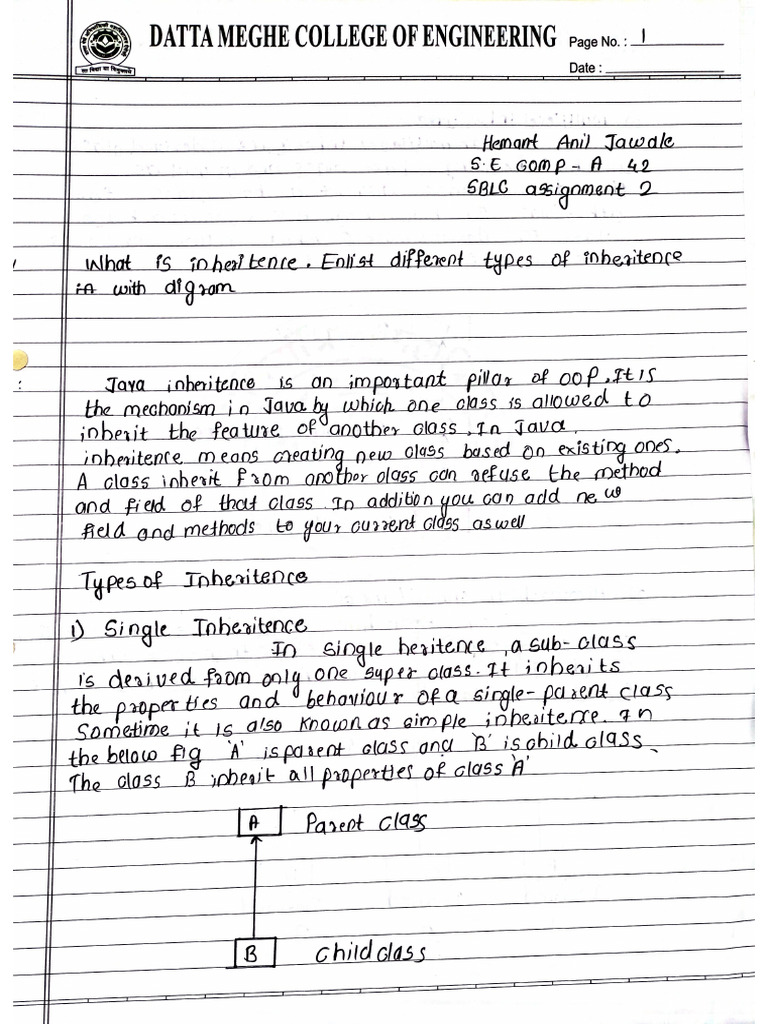 DATTA MEGHE COLLEGE OF ENGINEERING
Page No. : 1
Date :
Hemant Anil Jawale
S.E COMP - A 42
SBLC assignment 2
What is inheritence. Enlist different types of inheritence
in with digram
Java inheritence is an important pillar of OOP. It is
the mechanism in Java by which one class is allowed to
inherit the feature of another class. In Java,
inheritence means creating new class based on existing ones.
A class inherit from another class can refuse the method
and field of that class. In addition you can add new
field and methods to your current class as well
Types of Inheritence
1) Single Inheritence
In single heritence, a sub-class
is derived from only one super class. It inherits
the properties and behaviour of a single-parent class
Sometime it is also known as simple inheritence. In
the below fig 'A' is parent class and 'B' is child class.
The class B inherit all properties of class 'A'
A Parent class
B Child class